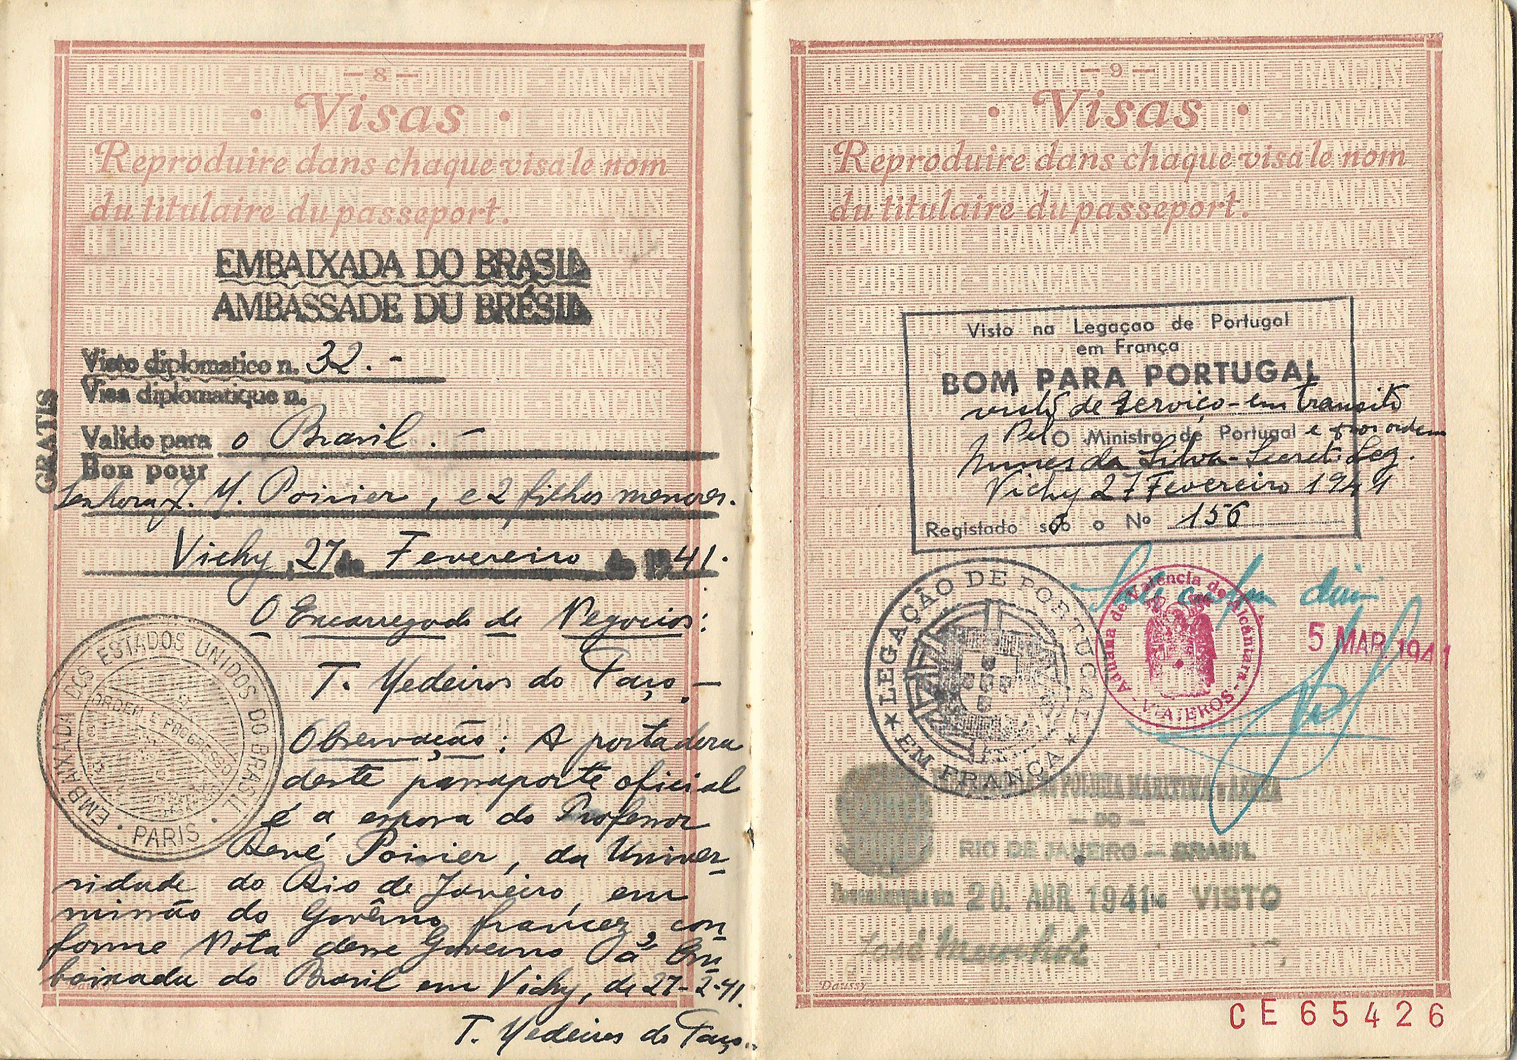 — 8 —
• Visas •
Reproduire dans chaque visa le nom
du titulaire du passeport.
EMBAIXADA DO BRASIL
AMBASSADE DU BRÉSIL
Visto diplomatico n. 32. -
Visa diplomatique n.
GRATIS
Valido para o Brasil. -
Bon pour
Senhora Y. Poirier, e 2 filhos menores.
Vichy, 27 de Fevereiro de 1941.
O Encarregado de Negocios:
T. Medeiros do Paço -
EMBAIXADA DOS ESTADOS UNIDOS DO BRASIL
ORDEM E PROGRESSO
• PARIS •
Observação: A portadora
deste passaporte oficial
é a esposa do Professor
René Poirier, da Univer-
sidade do Rio de Janeiro, em
missão do Govêrno francez, con
forme Nota desse Governo à Em
baixada do Brasil em Vichy, de 27-2-41.
T. Medeiros do Paço.
— 9 —
• Visas •
Reproduire dans chaque visa le nom
du titulaire du passeport.
Visto na Legaçao de Portugal
em França
BOM PARA PORTUGAL
visto de serviço - em transito
Pelo Ministro de Portugal e por ordem
Nunes da Silva - Secret. Leg.
Vichy 27 Fevereiro 1941
Registado sob o Nº 156
LEGAÇÃO DE PORTUGAL
★ EM FRANÇA ★
Aduana de Valencia de Alcántara
- VIAJEROS -
5 MAR 1941
POLICIA MARITIMA e AEREA
— DO —
RIO DE JANEIRO — BRASIL
Desembarque em 20. ABR. 1941 VISTO
José
Daussy
CE65426